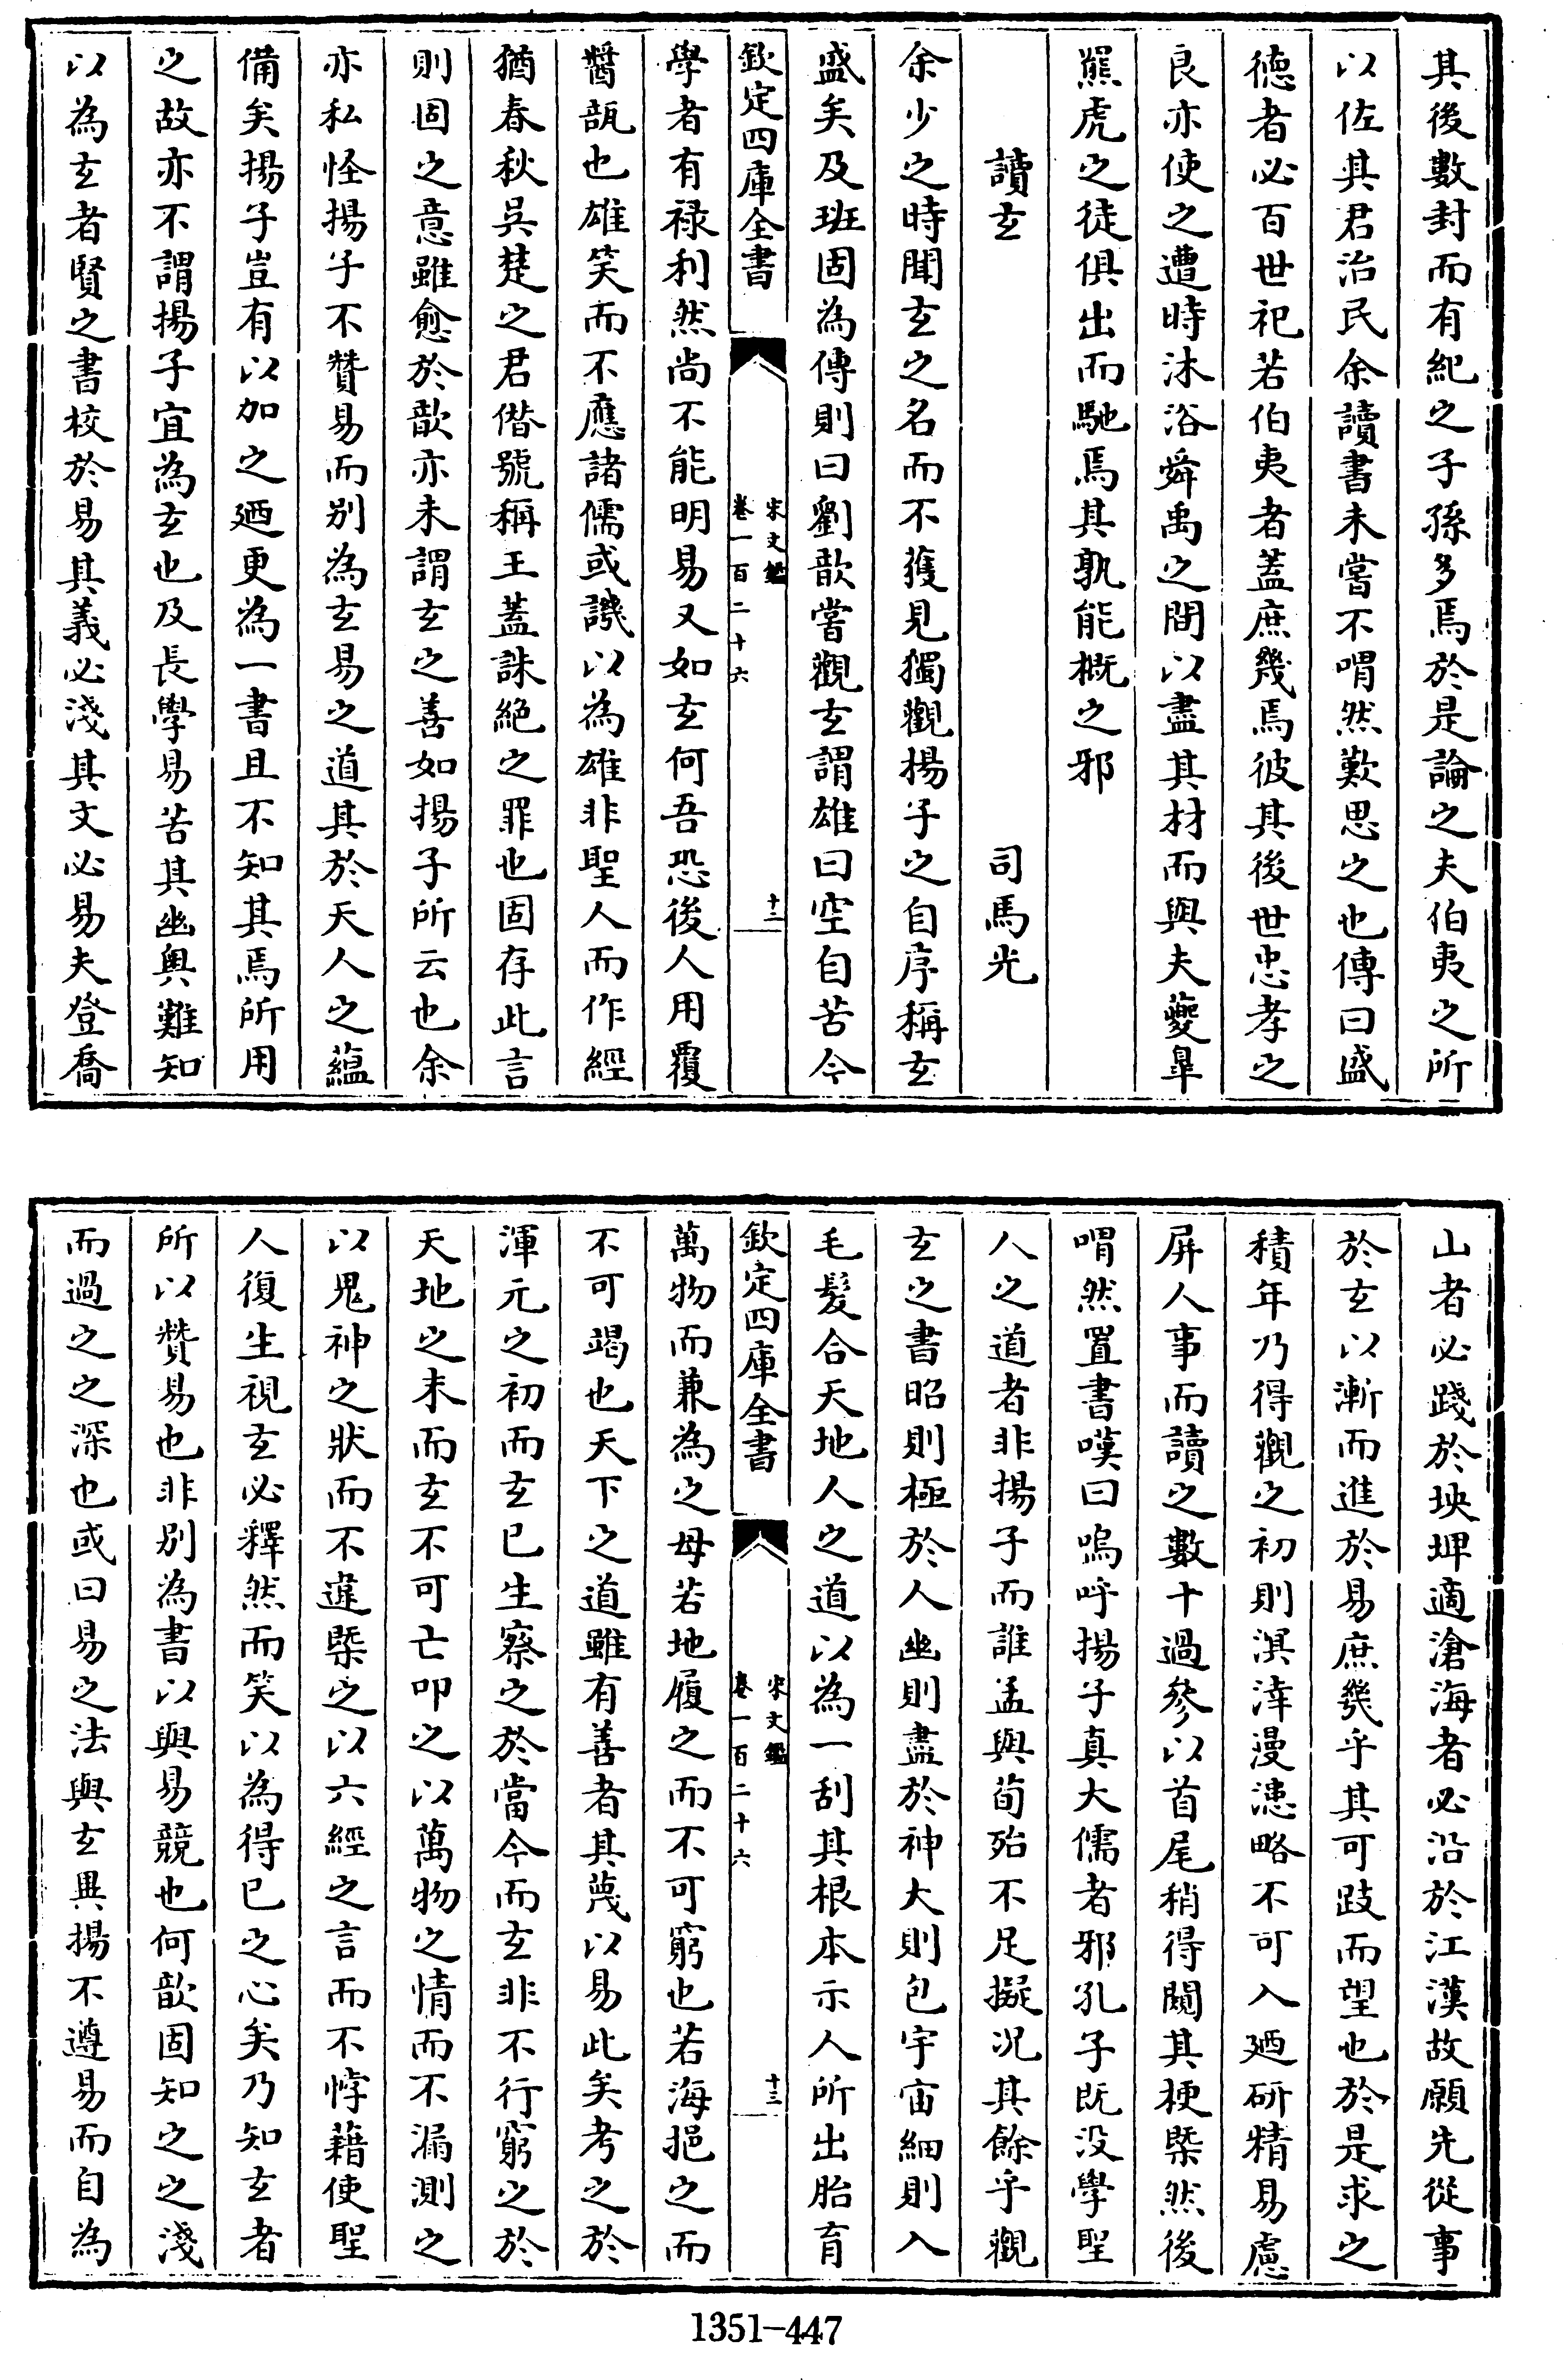 其後數封而有紀之子孫多焉於是論之夫伯夷之所
以佐其君治民余讀書未嘗不喟然歎思之也傳曰盛
德者必百世祀若伯夷者蓋庶幾焉彼其後世忠孝之
良亦使之遭時沐浴舜禹之間以盡其材而與夫夔臯
羆虎之徒俱出而馳焉其孰能概之邪
讀玄
司馬光
余少之時聞玄之名而不獲見獨觀揚子之自序稱玄
盛矣及班固為傳則曰劉歆嘗觀玄謂雄曰空自苦今
欽定四庫全書
宋文鑑
卷一百二十六
十三
學者有祿利然尚不能明易又如玄何吾恐後人用覆
醬瓿也雄笑而不應諸儒或譏以為雄非聖人而作經
猶春秋吳楚之君僭號稱王蓋誅絕之罪也固存此言
則固之意雖愈於歆亦未謂玄之善如揚子所云也余
亦私怪揚子不贊易而别為玄易之道其於天人之蘊
備矣揚子豈有以加之廼更為一書且不知其焉所用
之故亦不謂揚子宜為玄也及長學易苦其幽奥難知
以為玄者賢之書校於易其義必淺其文必易夫登喬
山者必踐於坱埤適滄海者必沿於江漢故願先從事
於玄以漸而進於易庶幾乎其可跂而望也於是求之
積年乃得觀之初則溟涬漫漶略不可入廼研精易慮
屏人事而讀之數十過參以首尾稍得闚其梗槩然後
喟然置書嘆曰嗚呼揚子真大儒者邪孔子既没學聖
人之道者非揚子而誰孟與荀殆不足擬况其餘乎觀
玄之書昭則極於人幽則盡於神大則包宇宙細則入
毛髮合天地人之道以為一刮其根本示人所出胎育
欽定四庫全書
宋文鑑
卷一百二十六
十三
萬物而兼為之母若地履之而不可窮也若海挹之而
不可竭也天下之道雖有善者其蔑以易此矣考之於
渾元之初而玄已生察之於當今而玄非不行窮之於
天地之末而玄不可亡叩之以萬物之情而不漏測之
以鬼神之狀而不違槩之以六經之言而不悖藉使聖
人復生視玄必釋然而笑以為得已之心矣乃知玄者
所以贊易也非别為書以與易競也何歆固知之之淺
而過之之深也或曰易之法與玄異揚不遵易而自為
1351-447